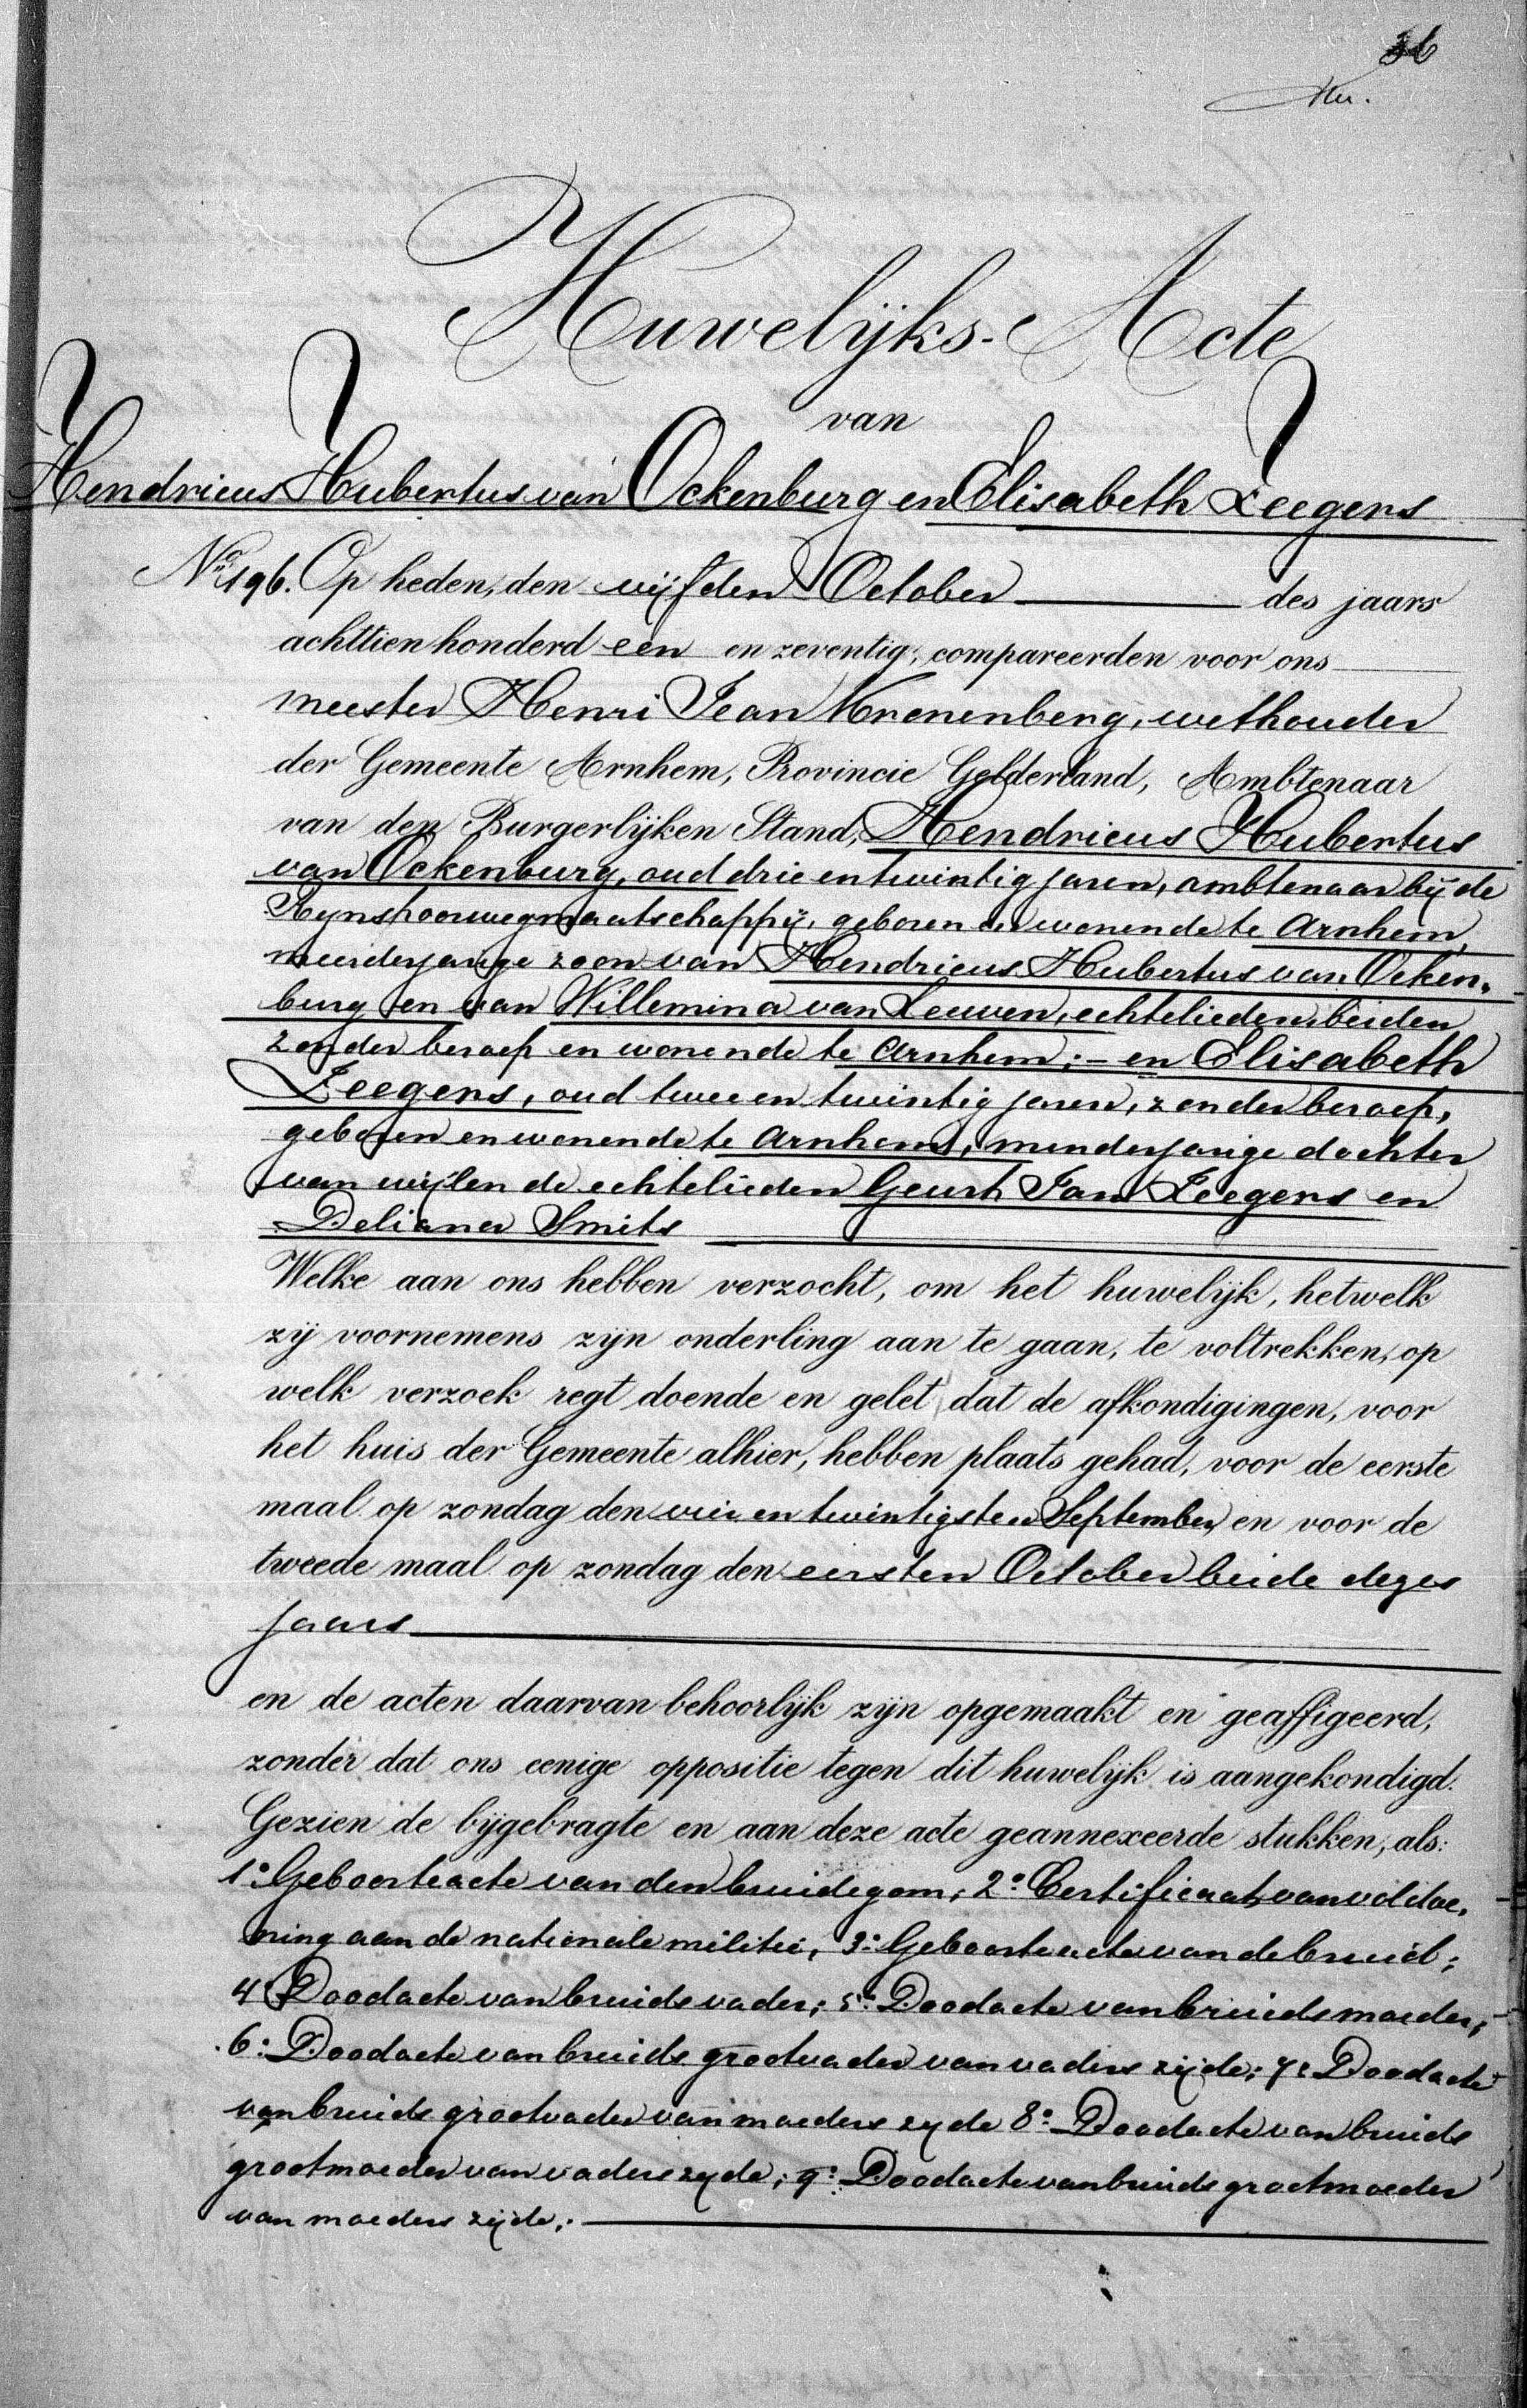 36
Huwelijks-Acte
van
Hendricus Hubertus van Ockenburg en Elisabeth Zeegers
No. 196. Op heden, den vijfden October des jaars
achttienhonderd een en zeventig, compareerden voor ons
meester Henri Jean Kronenberg, wethouder
der Gemeente Arnhem, Provincie Gelderland, Ambtenaar
van den Burgerlijken Stand, Hendricus Hubertus
van Ockenburg, oud drie en twintig jaren, ambtenaar bij de
Rijnspoorwegmaatschappij, geboren en wonende te Arnhem,
minderjarige zoon van Hendricus Hubertus van Ocken-
burg en van Willemina van Leeuwen, echtelieden, beiden
zonder beroep en wonende te Arnhem; - en Elisabeth
Zeegers, oud twee en twintig jaren, zonder beroep,
geboren en wonende te Arnhem, minderjarige dochter
van wijlen de echtelieden Geurt Jan Zeegers en
Deliana Smits
Welke aan ons hebben verzocht, om het huwelijk, hetwelk
zij voornemens zijn onderling aan te gaan, te voltrekken, op
welk verzoek regt doende en gelet dat de afkondigingen, voor
het huis der Gemeente alhier, hebben plaats gehad, voor de eerste
maal op zondag den vier en twintigsten September en voor de
tweede maal op zondag den eersten October beide dezes
jaars
en de acten daarvan behoorlijk zijn opgemaakt en geaffigeerd,
zonder dat ons eenige oppositie tegen dit huwelijk is aangekondigd.
Gezien de bijgebragte en aan deze acte geannexeerde stukken, als:
1o. Geboorteacte van den bruidegom; 2o. Certificaat van voldoe-
ning aan de nationale militie, 3o. Geboorteacte van de bruid;
4o. Doodacte van bruids vader; 5o. Doodacte van bruids moeder;
6o. Doodacte van bruids grootvader van vaders zijde; 7o. Doodacte
van bruids grootvader van moeders zyde 8o. Doodacte van bruids
grootmoeder van vaders zyde; 9o. Doodacte van bruids grootmoeder
van moeders zijde;